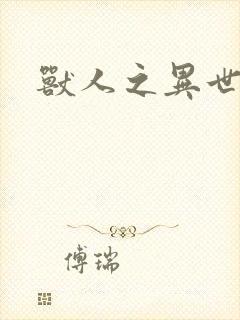 獸人之異世
傅瑞